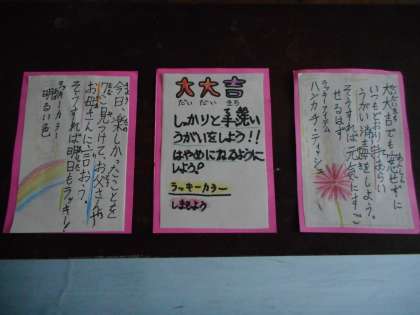 今日、楽しかったことを
見つけて、お父さんや
お母さんに言おう。
そうすれば明日もラッキー!
ラッキーカラー
明るい色
大大吉
だい だい きち
しっかりと手洗い
うがいをしよう!!
はやめにねるように
しよう。
ラッキーカラー
しまもよう
大大吉でも せずに
いつもどおり手あらい
うがい消毒をしよう。
そうすれば元気にすご
せるはず
ラッキーアイテム
ハンカチ・ティッシュ